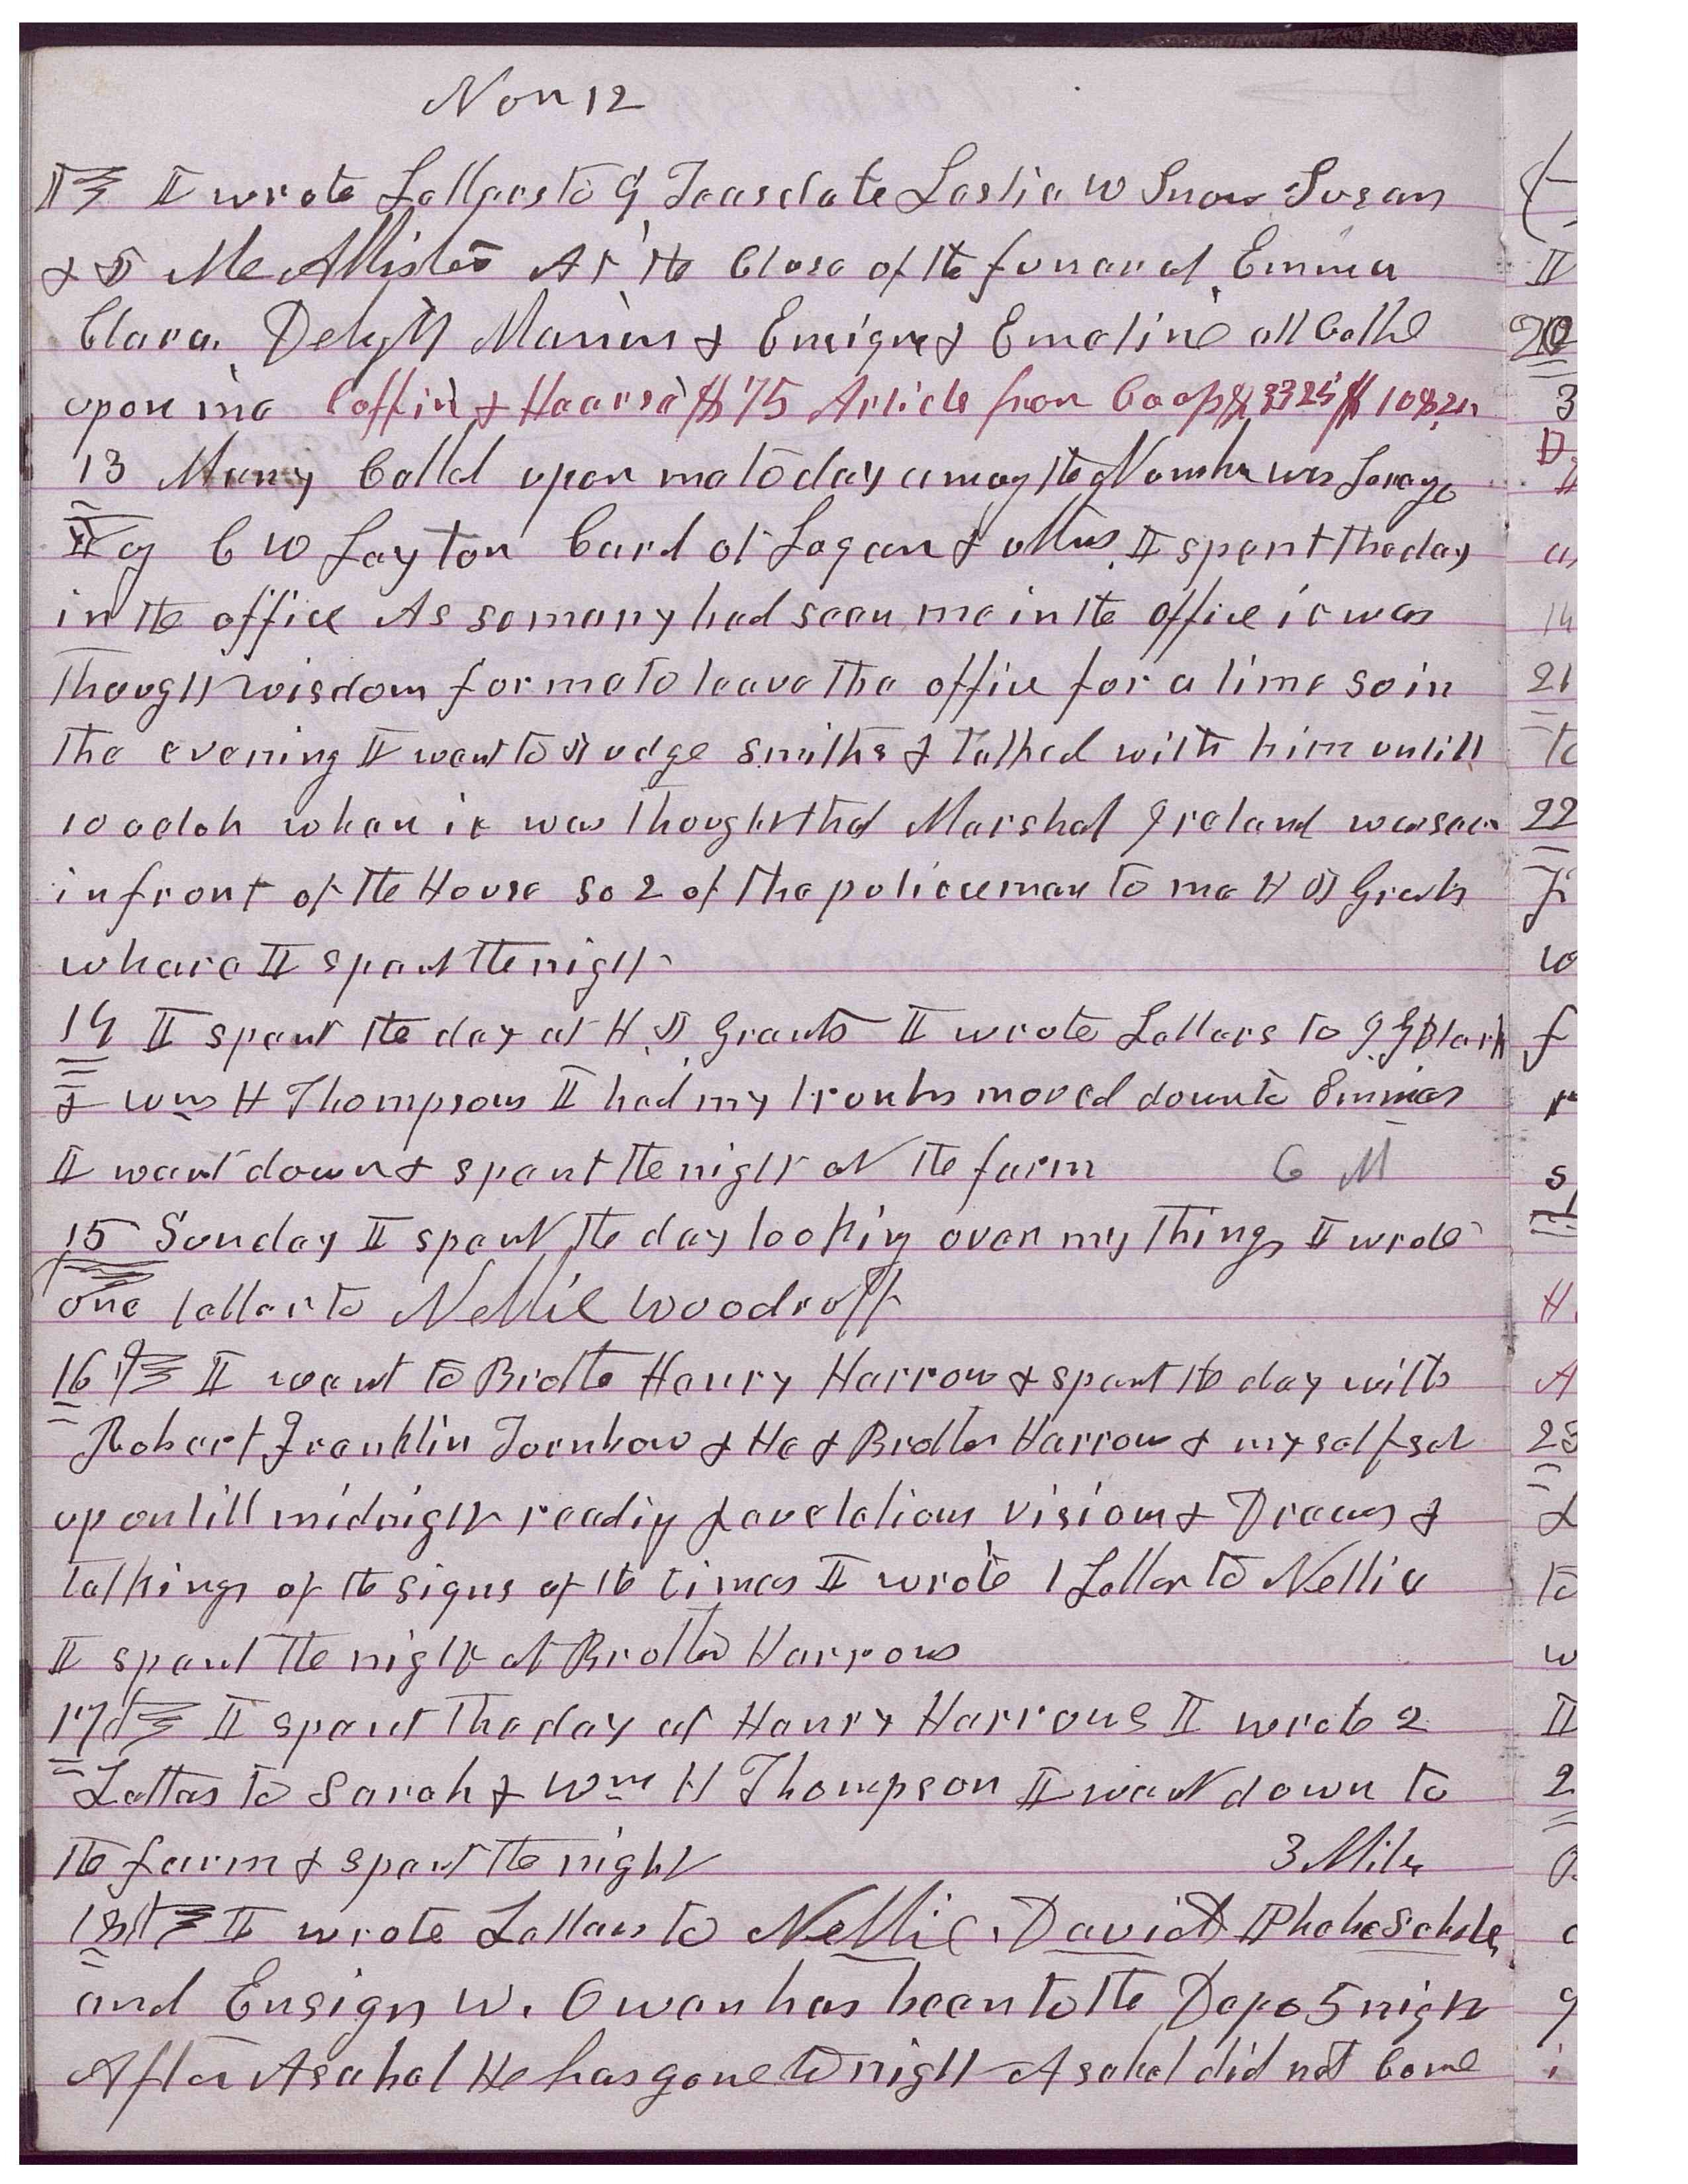 Nov 12
I wrote Letters to G Teasdale Leslie W Snow Susan
& D McAllister At the Close of the funeral Emma
Clara Delight Marion & Ensign & Emeline all Called
upon me Coffin & Hearse $75 Article from Coop $3325
13 Many Called upon me to day among the Number was
C W Layton Card of Logan & others I spent the day
in the office As so many had seen me in the office it was
thought wisdom for me to leave the office for a time so in
the evening I went to Judge Smiths & talked with him untill
10 oclok when it was thought that Marshal Ireland was seen
in front of the House so 2 of the policeman to me H D Grants
whare I spent the night
14 I spent the day at H. J. Grants I wrote Letters to
& Wm H Thompson I had my trunks moved down to Emmas
I went down & spent the night at the farm 6 M
15 Sunday I spent the day looking over my things I wrote
one letter to Nellie Woodruff
16th I went to Brothe Henry Harrow & spent the day with
Robert Franklin Turnbow & He & Brother Harrow & myself sat
up untill midnight reading Revelations visions & Dreams &
talkings of the signs of the times I wrote 1 Letter to Nellie
I spent the night at Brother Harrows
17th I spent the day at Henry Harrows I wrote 2
Letters to Sarah & Wm H Thompson I went down to
the farm & spent the night 3 Miles
18th I wrote Letters to Nellie. David Phebe
and Ensign W. Owen has been to the Depo 5 night
After Asahel He has gone to night Asahel did not Come